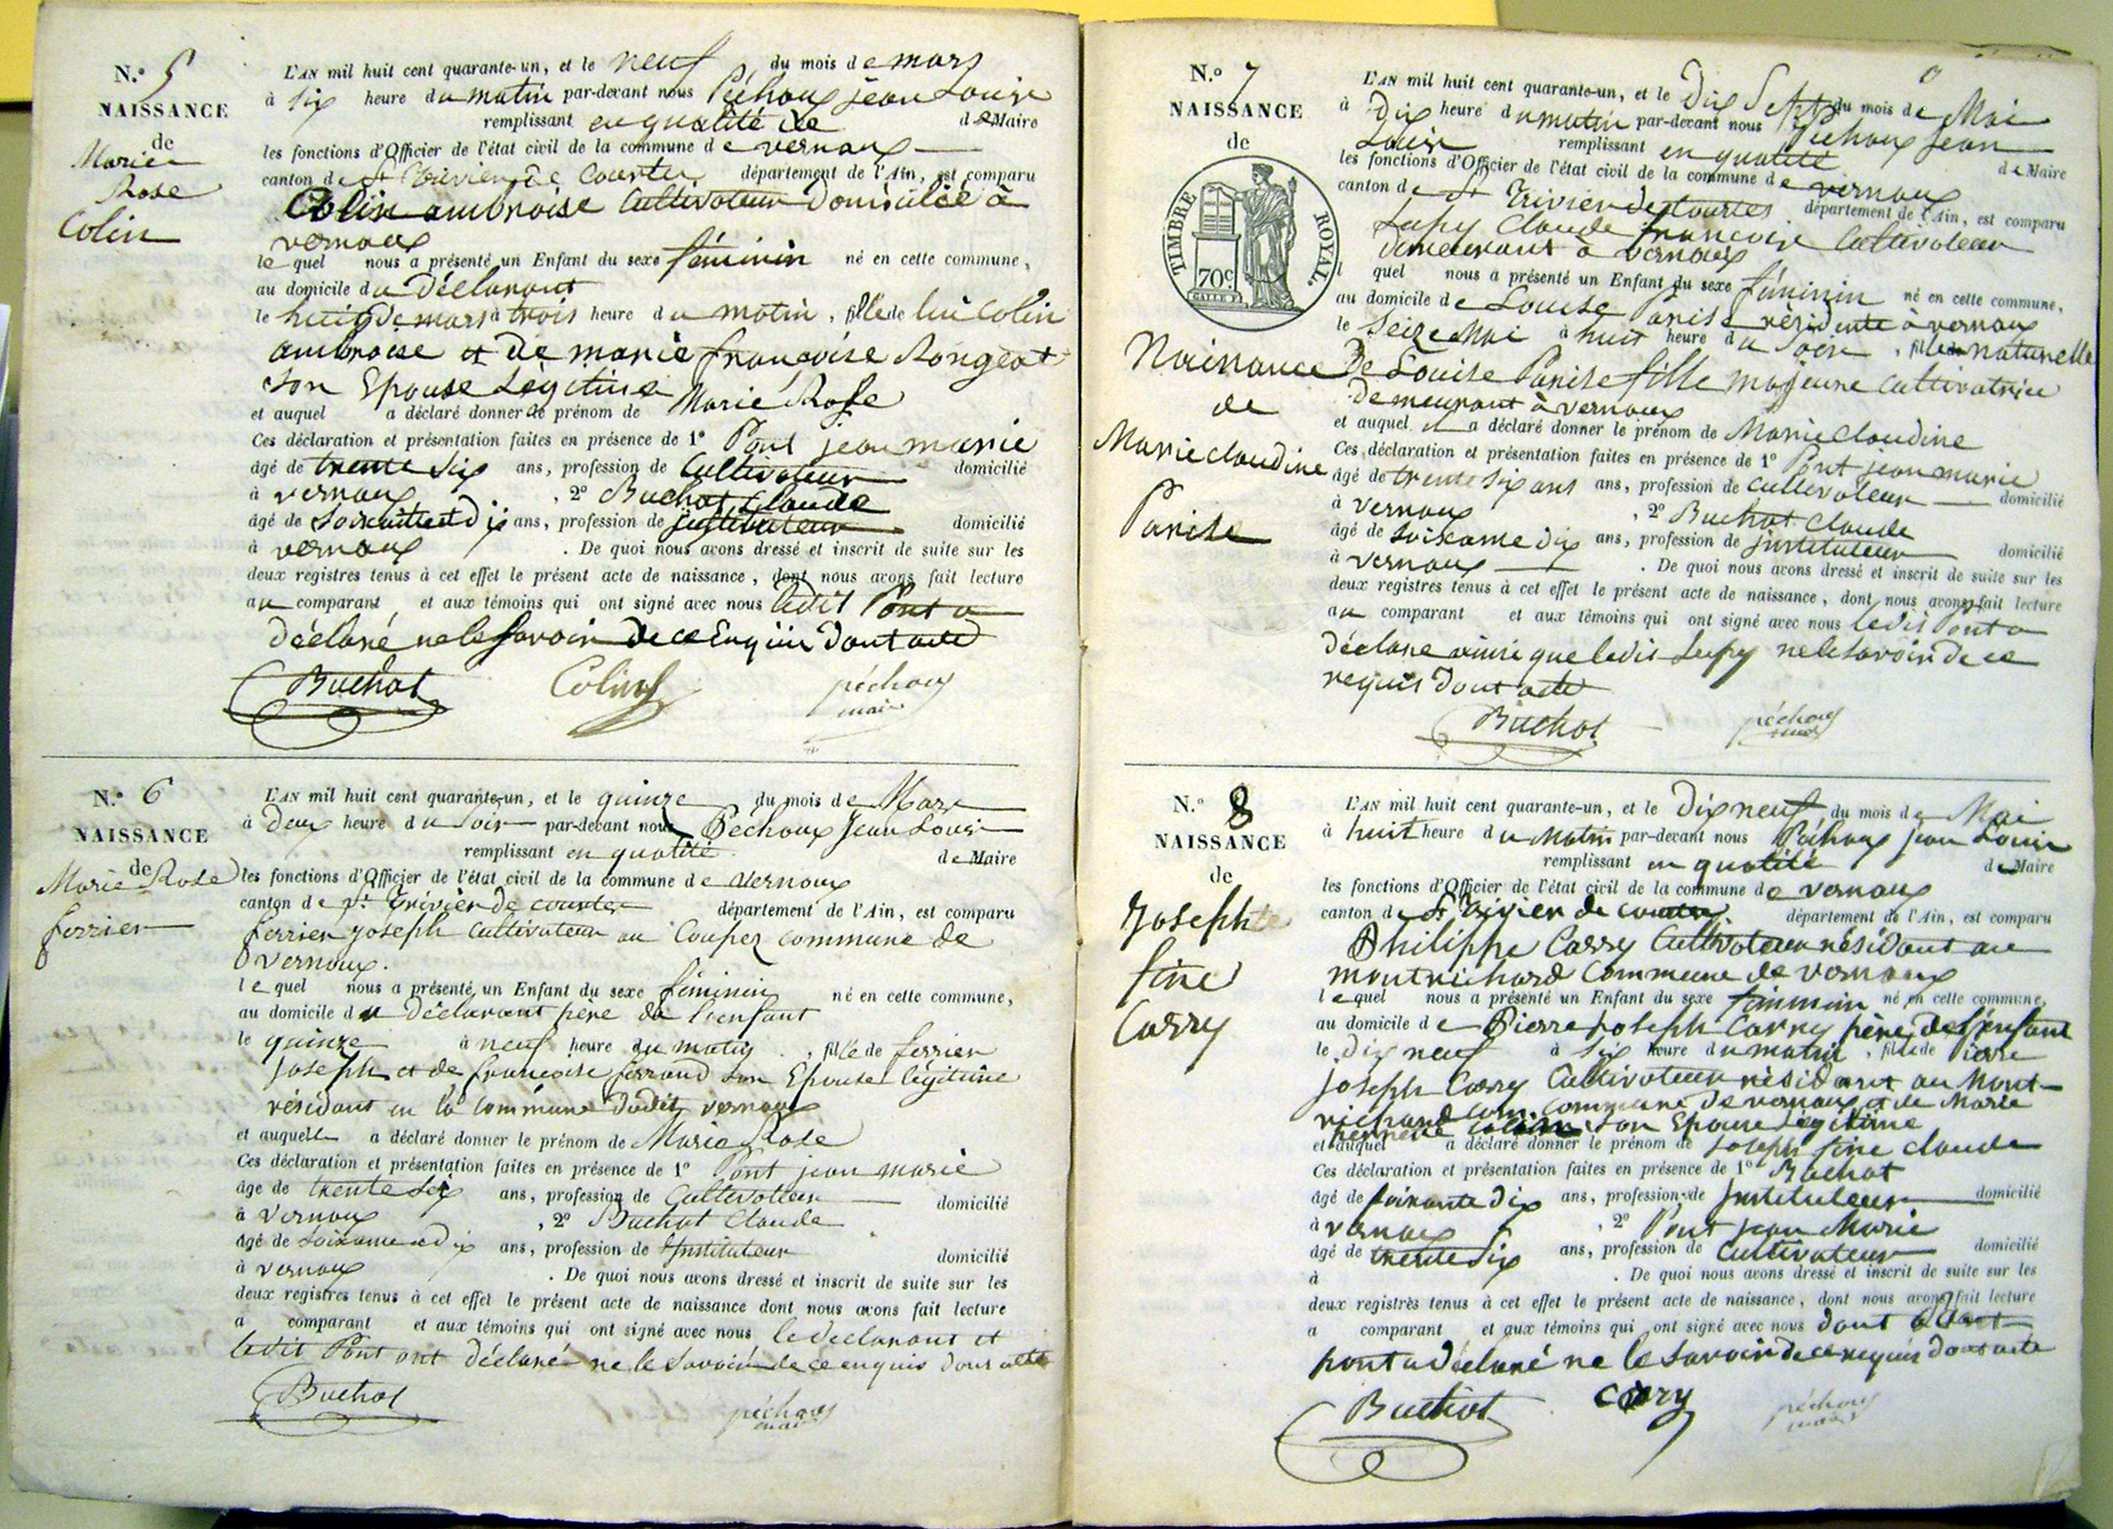 N.° 5
NAISSANCE
de
Marie
Rose
Colin
L'AN mil huit cent quarante-un, et le neuf du mois de mars
à six heure du matin par-devant nous Péchoux jean Louis
remplissant en qualité de de Maire
les fonctions d'Officier de l'état civil de la commune de vernoux
canton de St Trivier de Courtes département de l'Ain, est comparu
Colin ambroise Cultivateur domicilié à
vernoux
le quel nous a présenté un Enfant du sexe féminin né en cette commune,
au domicile du Déclarant
le huit de mars à trois heure du matin, fille de lui Colin
ambroise et de marie françoise Rongeat
son Epouse Légitime
et auquel a déclaré donner le prénom de Marie Rose
Ces déclaration et présentation faites en présence de 1° Pont jean marie
âgé de trente six ans, profession de Cultivateur domicilié
à vernoux, 2° Buchot Claude
âgé de soixante et dix ans, profession de instituteur domicilié
à vernoux. De quoi nous avons dressé et inscrit de suite sur les
deux registres tenus à cet effet le présent acte de naissance, dont nous avons fait lecture
au comparant et aux témoins qui ont signé avec nous ledit Pont a
déclaré ne le savoir de ce Enquis dont acte
Buchot Colin péchoux
maire
N.° 6
NAISSANCE
de
Marie Rose
ferrier
L'AN mil huit cent quarante-un, et le quinze du mois de Mars
à deux heure du soir par-devant nous Péchoux Jean Louis
remplissant en qualité de Maire
les fonctions d'Officier de l'état civil de la commune de vernoux
canton de St Trivier de courtes département de l'Ain, est comparu
ferrier joseph cultivateur au Coupez commune de
vernoux.
le quel nous a présenté un Enfant du sexe féminin né en cette commune,
au domicile du déclarant père de l'enfant
le quinze à neuf heure du matin, fille de ferrier
joseph et de francoise ferrand son Epouse légitime
résidant en la commune dudit vernoux
et auquelle a déclaré donner le prénom de Marie Rose
Ces déclaration et présentation faites en présence de 1° Pont jean marie
âgé de trente six ans, profession de Cultivateur domicilié
à vernoux, 2° Buchot Claude
âgé de soixante et dix ans, profession de Instituteur domicilié
à vernoux. De quoi nous avons dressé et inscrit de suite sur les
deux registres tenus à cet effet le présent acte de naissance dont nous avons fait lecture
a comparant et aux témoins qui ont signé avec nous le declarant et
ledit Pont ont déclaré ne le savoir de ce enquis dont acte
Buchot péchoux
maire
N.° 7
NAISSANCE
de
TIMBRE ROYAL.
70c.
Naissance
de
Marie claudine
Parise
L'AN mil huit cent quarante-un, et le dix Sept du mois de Mai
à Dix heure du matin par-devant nous Péchoux jean
Louis remplissant en qualité de Maire
les fonctions d'Officier de l'état civil de la commune de vernoux
canton de St Trivier de courtes département de l'Ain, est comparu
Lupy Claude françois Cultivateur
demeurant à vernoux
l quel nous a présenté un Enfant du sexe féminin né en cette commune,
au domicile de Louise Parise résidente à vernoux
le Seize Mai à huit heure du soir, fille naturelle
De Louise Parise fille majeure cultivatrice
demeurant à vernoux
et auquel il a déclaré donner le prénom de Marie Claudine
Ces déclaration et présentation faites en présence de 1° Pont jean marie
âgé de trente six ans ans, profession de cultivateur domicilié
à vernoux, 2° Buchot Claude
âgé de soixante dix ans, profession de instituteur domicilié
à vernoux. De quoi nous avons dressé et inscrit de suite sur les
deux registres tenus à cet effet le présent acte de naissance, dont nous avons fait lecture
au comparant et aux témoins qui ont signé avec nous ledit Pont a
déclaré ainsi que ledit Lupy ne le savoir de ce
requis dont acte
Buchot péchoux
maire
N.° 8
NAISSANCE
de
Joseph te
fine
Carry
L'AN mil huit cent quarante-un, et le dix neuf du mois de Mai
à huit heure du Matin par-devant nous Péchoux jean Louis
remplissant en qualité de Maire
les fonctions d'Officier de l'état civil de la commune de vernoux
canton de St Trivier de courtes. département de l'Ain, est comparu
Philippe Carry Cultivateur résidant au
montrichard commune de vernoux
le quel nous a présenté un Enfant du sexe féminin né en cette commune,
au domicile de Pierre joseph Carry père de l'enfant
le dix neuf à six heure du matin, fille de Pierre
joseph Carry Cultivateur résidant au Mont-
richard commune de vernoux et de Marie
son Epouse Légitime
et auquel a déclaré donner le prénom de joseph fine claude
Ces déclaration et présentation faites en présence de 1° Buchot
âgé de soixante dix ans, profession de instituteur domicilié
à vernoux, 2° Pont jean Marie
âgé de trente six ans, profession de Cultivateur domicilié
à . De quoi nous avons dressé et inscrit de suite sur les
deux registres tenus à cet effet le présent acte de naissance, dont nous avons fait lecture
a comparant et aux témoins qui ont signé avec nous dont
pont a déclaré ne le savoir de ce requis dont acte
Buchot carry péchoux
maire